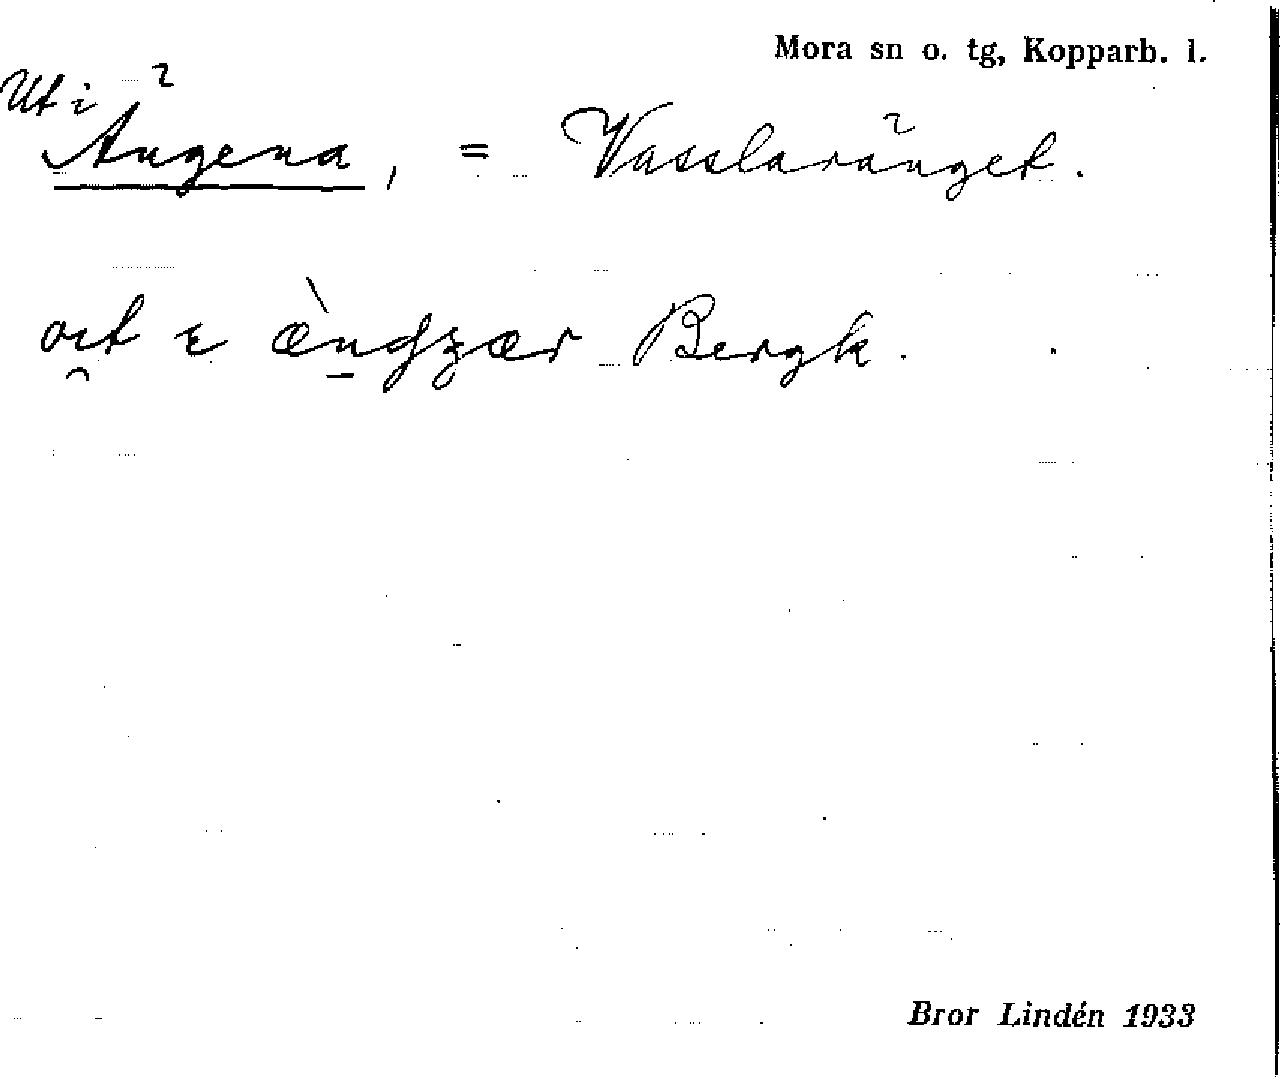 Mora sn o. tg, Kopparb. l.
Ut i
Ängena, = Vasslaränget.
Bergk.
Bror Lindén 1933